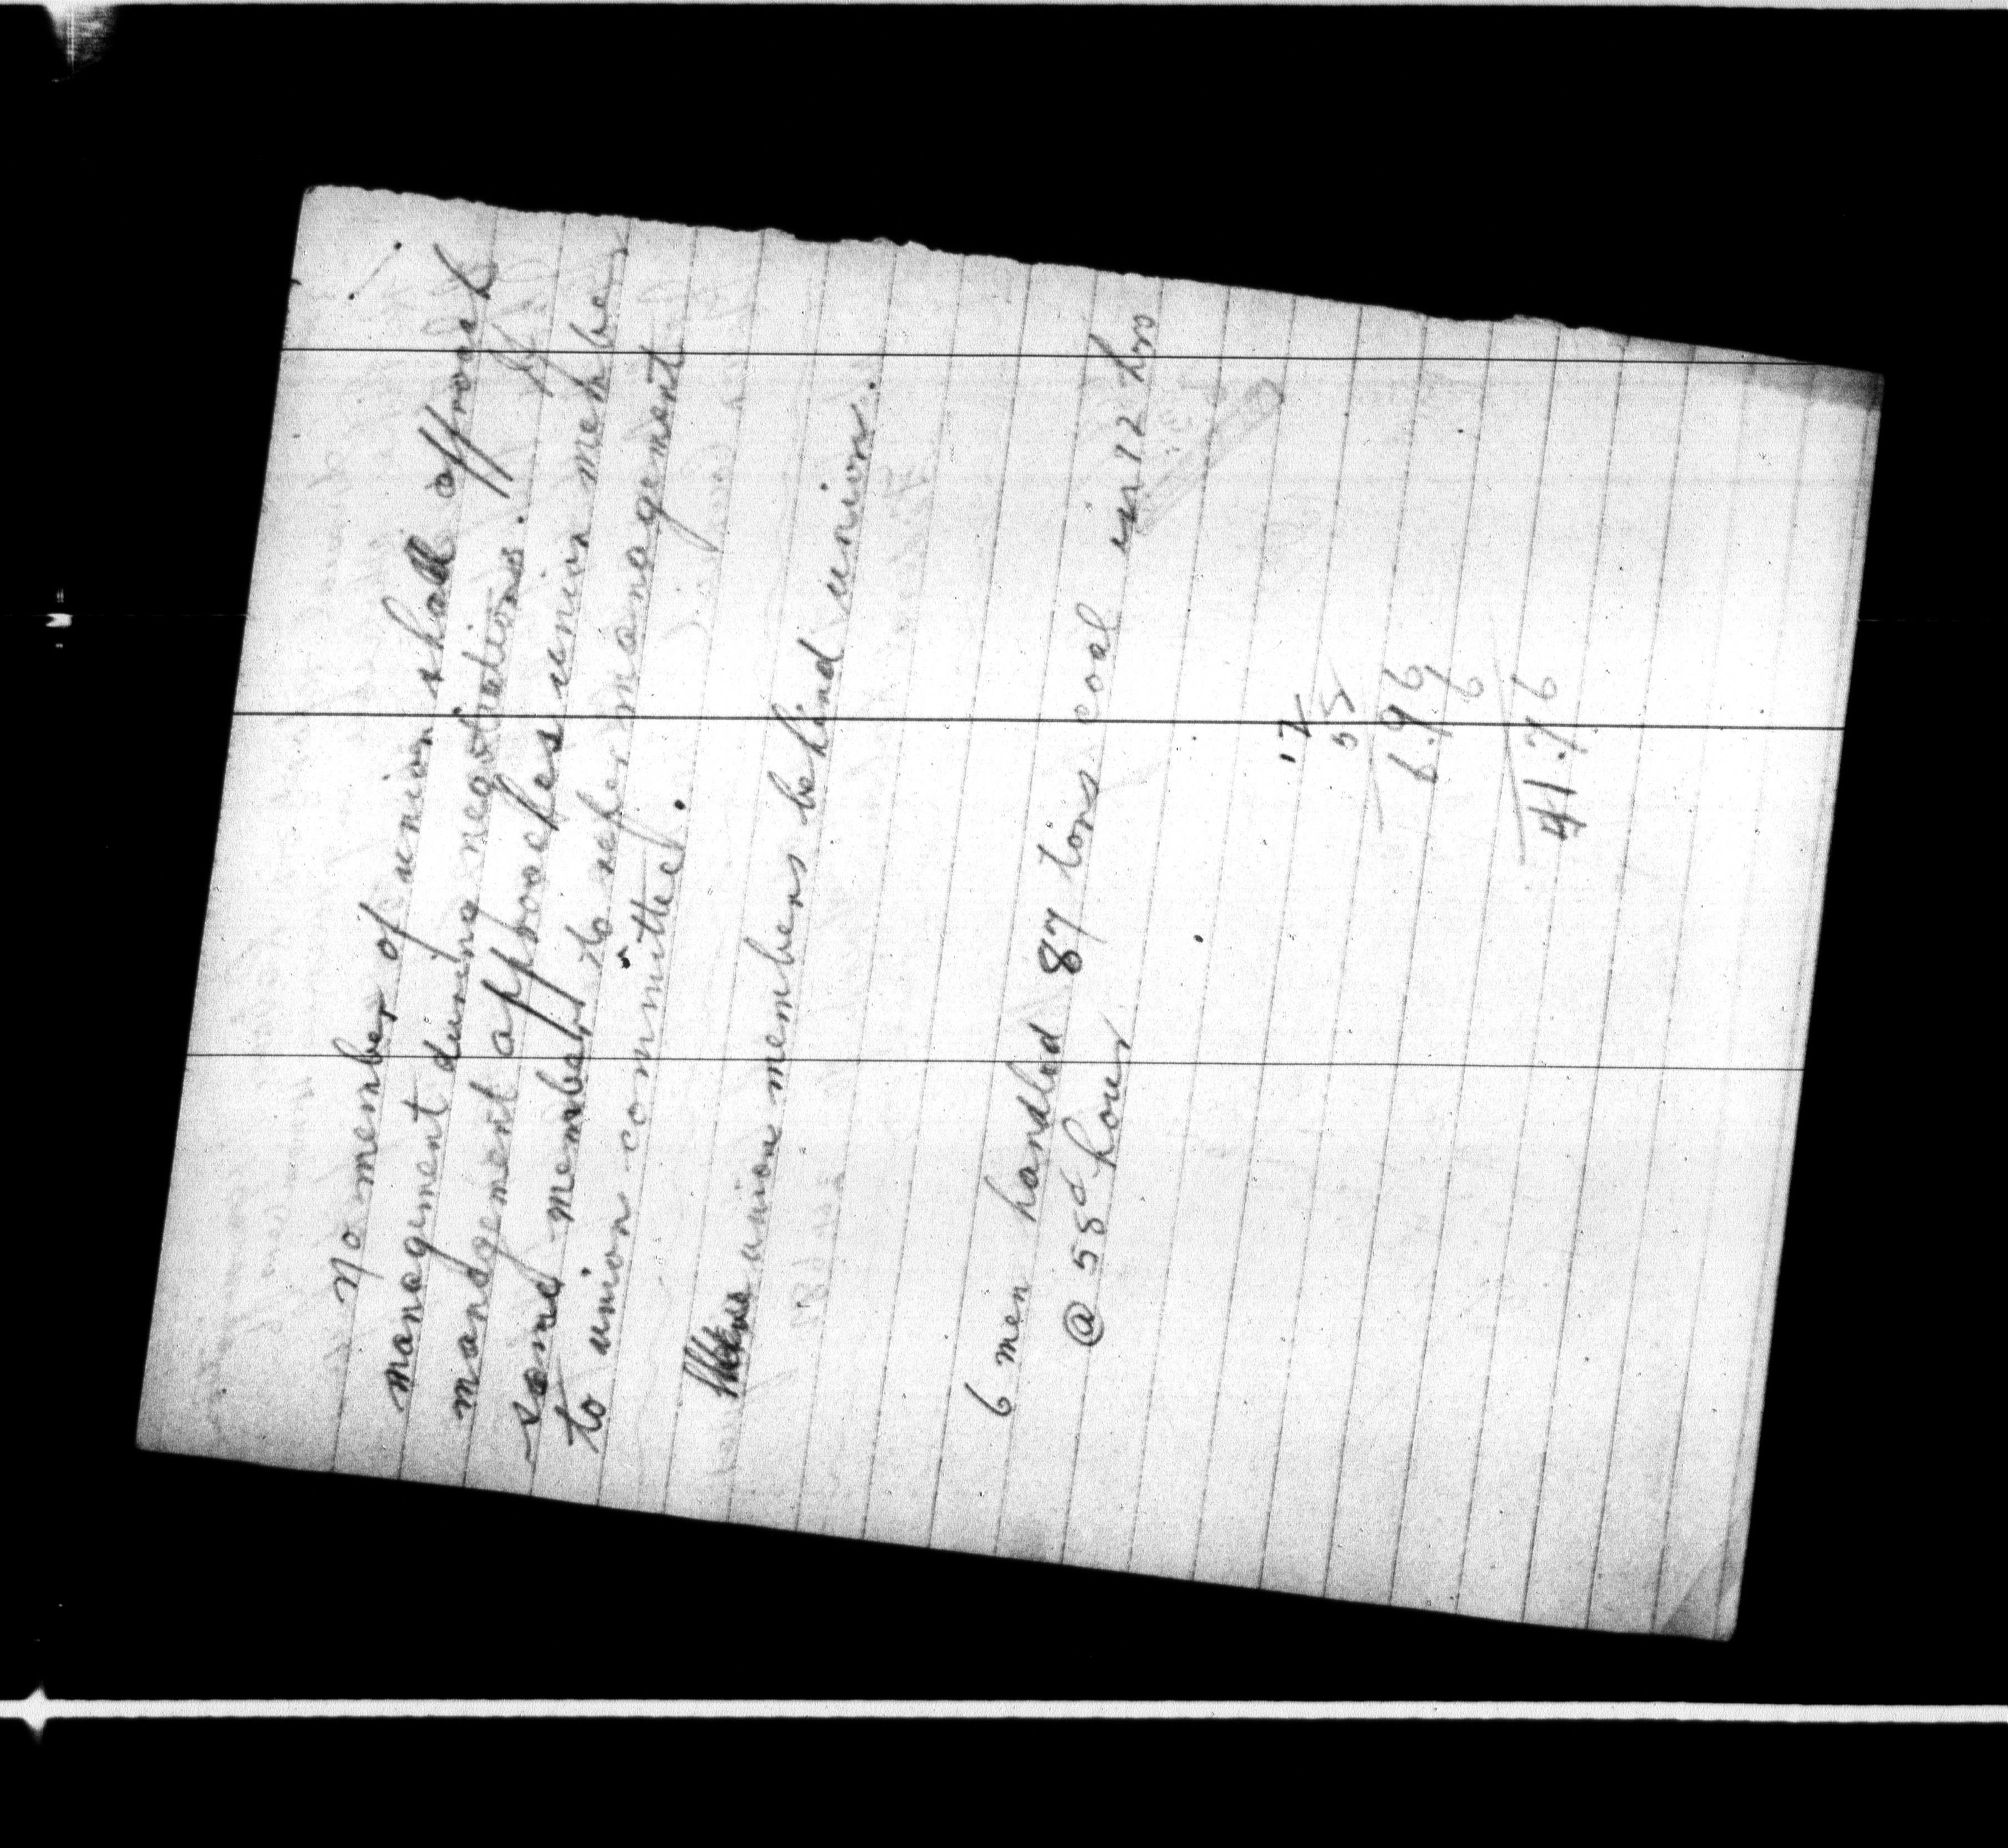 No member of union shall approach
management during negotiations. If
management approaches union member
same member to refer management
to union committee.
union members behind union.
6 men handled 87 tons coal in 12 hrs
@ 58¢ hour
12
58
6.96
6
41.76